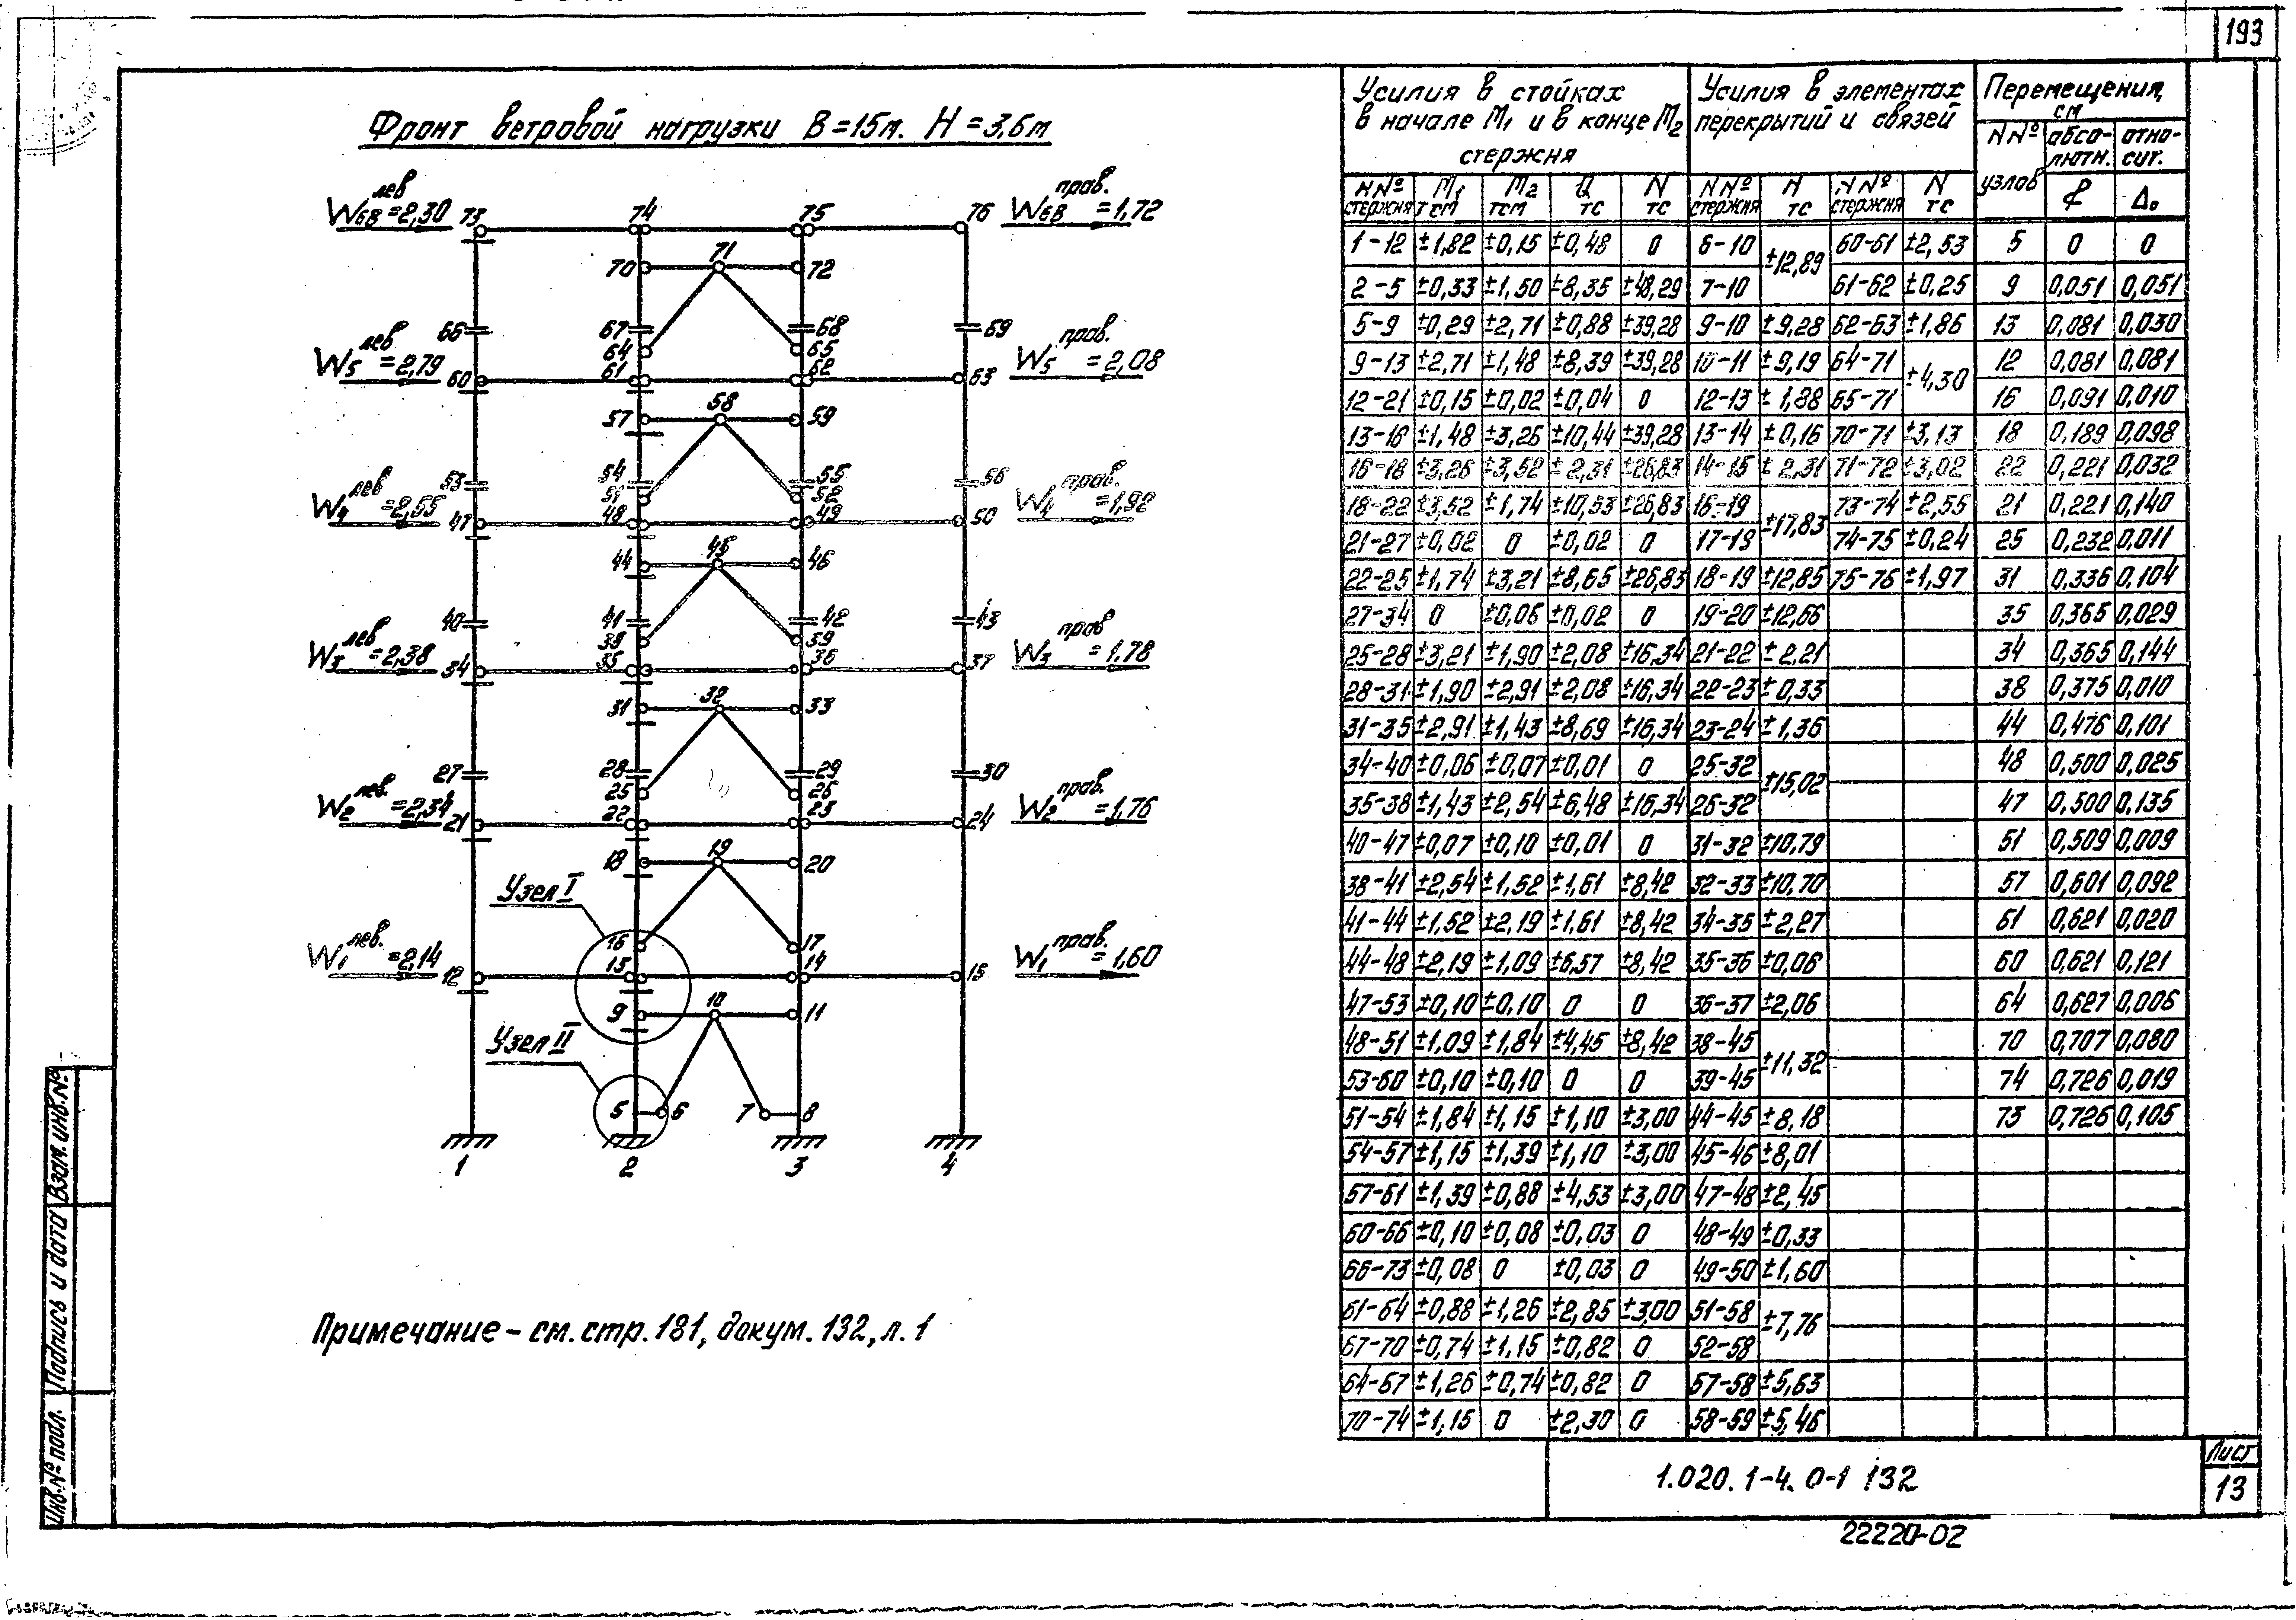 193
Фронт ветровой нагрузки В=15м. Н=3,6м
W6В лев =2,30 73 74 75 76 W6В прав. =1,72
71
70 72
66 67 68 69
64 65
W5 лев =2,79 60 61 62 63 W5 прав. =2,08
58
57 59
53 54 55 56
51 52
W4 лев =2,55 47 48 49 50 W4 прав. =1,92
45
44 46
40 41 42 43
38 39
W3 лев =2,38 34 35 36 37 W3 прав =1,78
32
31 33
27 28 29 30
25 26
W2 лев. =2,34 21 22 23 24 W2 прав. =1,76
19
18 20
Узел I
16 17
W1 лев. =2,14 12 13 14 15 W1 прав. =1,60
10
9 11
Узел II
5 6 7 8
1 2 3 4
Примечание – см. стр. 181, докум. 132, л. 1
Усилия в стойках в начале М1 и в конце М2 стержня
Усилия в элементах перекрытий и связей
Перемещения, см
NNº стержня М1 тсм М2 тсм Q тс N тс NNº стержня N тс NNº стержня N тс NNº узлов абсо-лютн. f отно-сит. Δо
1-12 ±1,82 ±0,15 ±0,48 0 6-10 ±12,89 60-61 ±2,53 5 0 0
2-5 ±0,33 ±1,50 ±8,35 ±48,29 7-10 61-62 ±0,25 9 0,051 0,051
5-9 ±0,29 ±2,71 ±0,88 ±39,28 9-10 ±9,28 62-63 ±1,86 13 0,081 0,030
9-13 ±2,71 ±1,48 ±8,39 ±39,28 10-11 ±9,19 64-71 ±4,30 12 0,081 0,081
12-21 ±0,15 ±0,02 ±0,04 0 12-13 ±1,88 65-71 16 0,091 0,010
13-16 ±1,48 ±3,26 ±10,44 ±39,28 13-14 ±0,16 70-71 ±3,13 18 0,189 0,098
16-18 ±3,26 ±3,52 ±2,31 ±26,83 14-15 ±2,31 71-72 ±3,02 22 0,221 0,032
18-22 ±3,52 ±1,74 ±10,53 ±26,83 16-19 ±17,83 73-74 ±2,55 21 0,221 0,140
21-27 ±0,02 0 ±0,02 0 17-19 74-75 ±0,24 25 0,232 0,011
22-25 ±1,74 ±3,21 ±8,65 ±26,83 18-19 ±12,85 75-76 ±1,97 31 0,336 0,104
27-34 0 ±0,06 ±0,02 0 19-20 ±12,66 35 0,365 0,029
25-28 ±3,21 ±1,90 ±2,08 ±16,34 21-22 ±2,21 34 0,365 0,144
28-31 ±1,90 ±2,91 ±2,08 ±16,34 22-23 ±0,33 38 0,375 0,010
31-35 ±2,91 ±1,43 ±8,69 ±16,34 23-24 ±1,36 44 0,476 0,101
34-40 ±0,06 ±0,07 ±0,01 0 25-32 ±15,02 48 0,500 0,025
35-38 ±1,43 ±2,54 ±6,48 ±16,34 26-32 47 0,500 0,135
40-47 ±0,07 ±0,10 ±0,01 0 31-32 ±10,79 51 0,509 0,009
38-41 ±2,54 ±1,52 ±1,61 ±8,42 32-33 ±10,70 57 0,601 0,092
41-44 ±1,52 ±2,19 ±1,61 ±8,42 34-35 ±2,27 61 0,621 0,020
44-48 ±2,19 ±1,09 ±6,57 ±8,42 35-36 ±0,06 60 0,621 0,121
47-53 ±0,10 ±0,10 0 0 36-37 ±2,06 64 0,627 0,006
48-51 ±1,09 ±1,84 ±4,45 ±8,42 38-45 ±11,32 70 0,707 0,080
53-60 ±0,10 ±0,10 0 0 39-45 74 0,726 0,019
51-54 ±1,84 ±1,15 ±1,10 ±3,00 44-45 ±8,18 73 0,726 0,105
54-57 ±1,15 ±1,39 ±1,10 ±3,00 45-46 ±8,01
57-61 ±1,39 ±0,88 ±4,53 ±3,00 47-48 ±2,45
60-66 ±0,10 ±0,08 ±0,03 0 48-49 ±0,33
66-73 ±0,08 0 ±0,03 0 49-50 ±1,60
61-64 ±0,88 ±1,26 ±2,85 ±3,00 51-58 ±7,76
67-70 ±0,74 ±1,15 ±0,82 0 52-58
64-67 ±1,26 ±0,74 ±0,82 0 57-58 ±5,63
70-74 ±1,15 0 ±2,30 0 58-59 ±5,46
Инв.№ подл. Подпись и дата Взам. инв.№
1.020.1-4. 0-1 132
Лист
13
22220-02